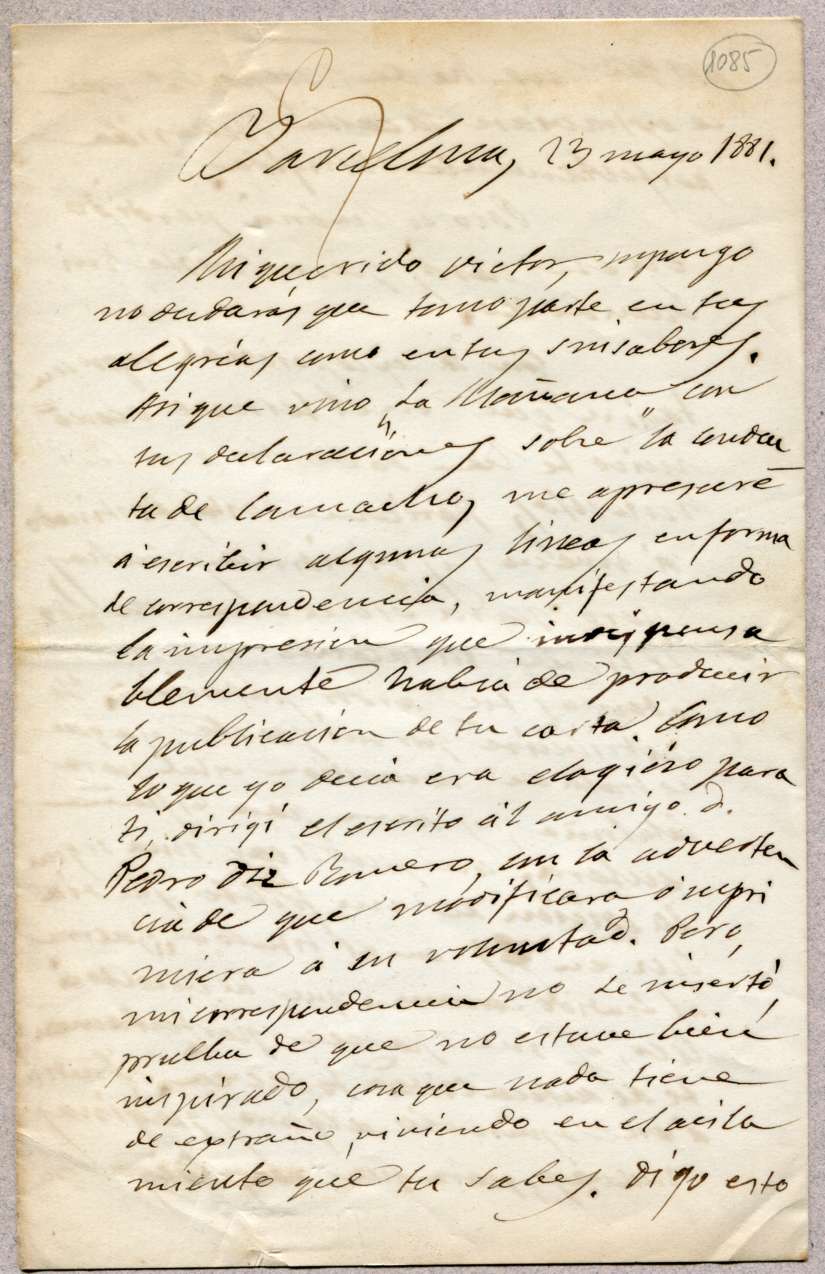 1085
Barcelona, 23 mayo 1881.
Mi querido Victor, supongo
no dudarás que tomo parte en tus
alegrías como en tus sinsabores.
Asi que vino "La Mañana" con
tus declaraciones sobre la conduc
ta de Camacho, me apresuré
á escribir algunas lineas en forma
de correspondencia, manifestando
la impresion que indispensa
blemente habia de producir
la publicacion de tu carta. Como
lo que yo decia era elogioso para
ti, dirigí el escrito al amigo D.
Pedro Diz Romero, con la adverten
cia de que modificara ó supri
miera á su voluntad. Pero,
mi correspondencia no se insertó,
prueba de que no estuve bien
inspirado, cosa que nada tiene
de extraño, viviendo en el aisla
miento que tu sabes. Digo esto